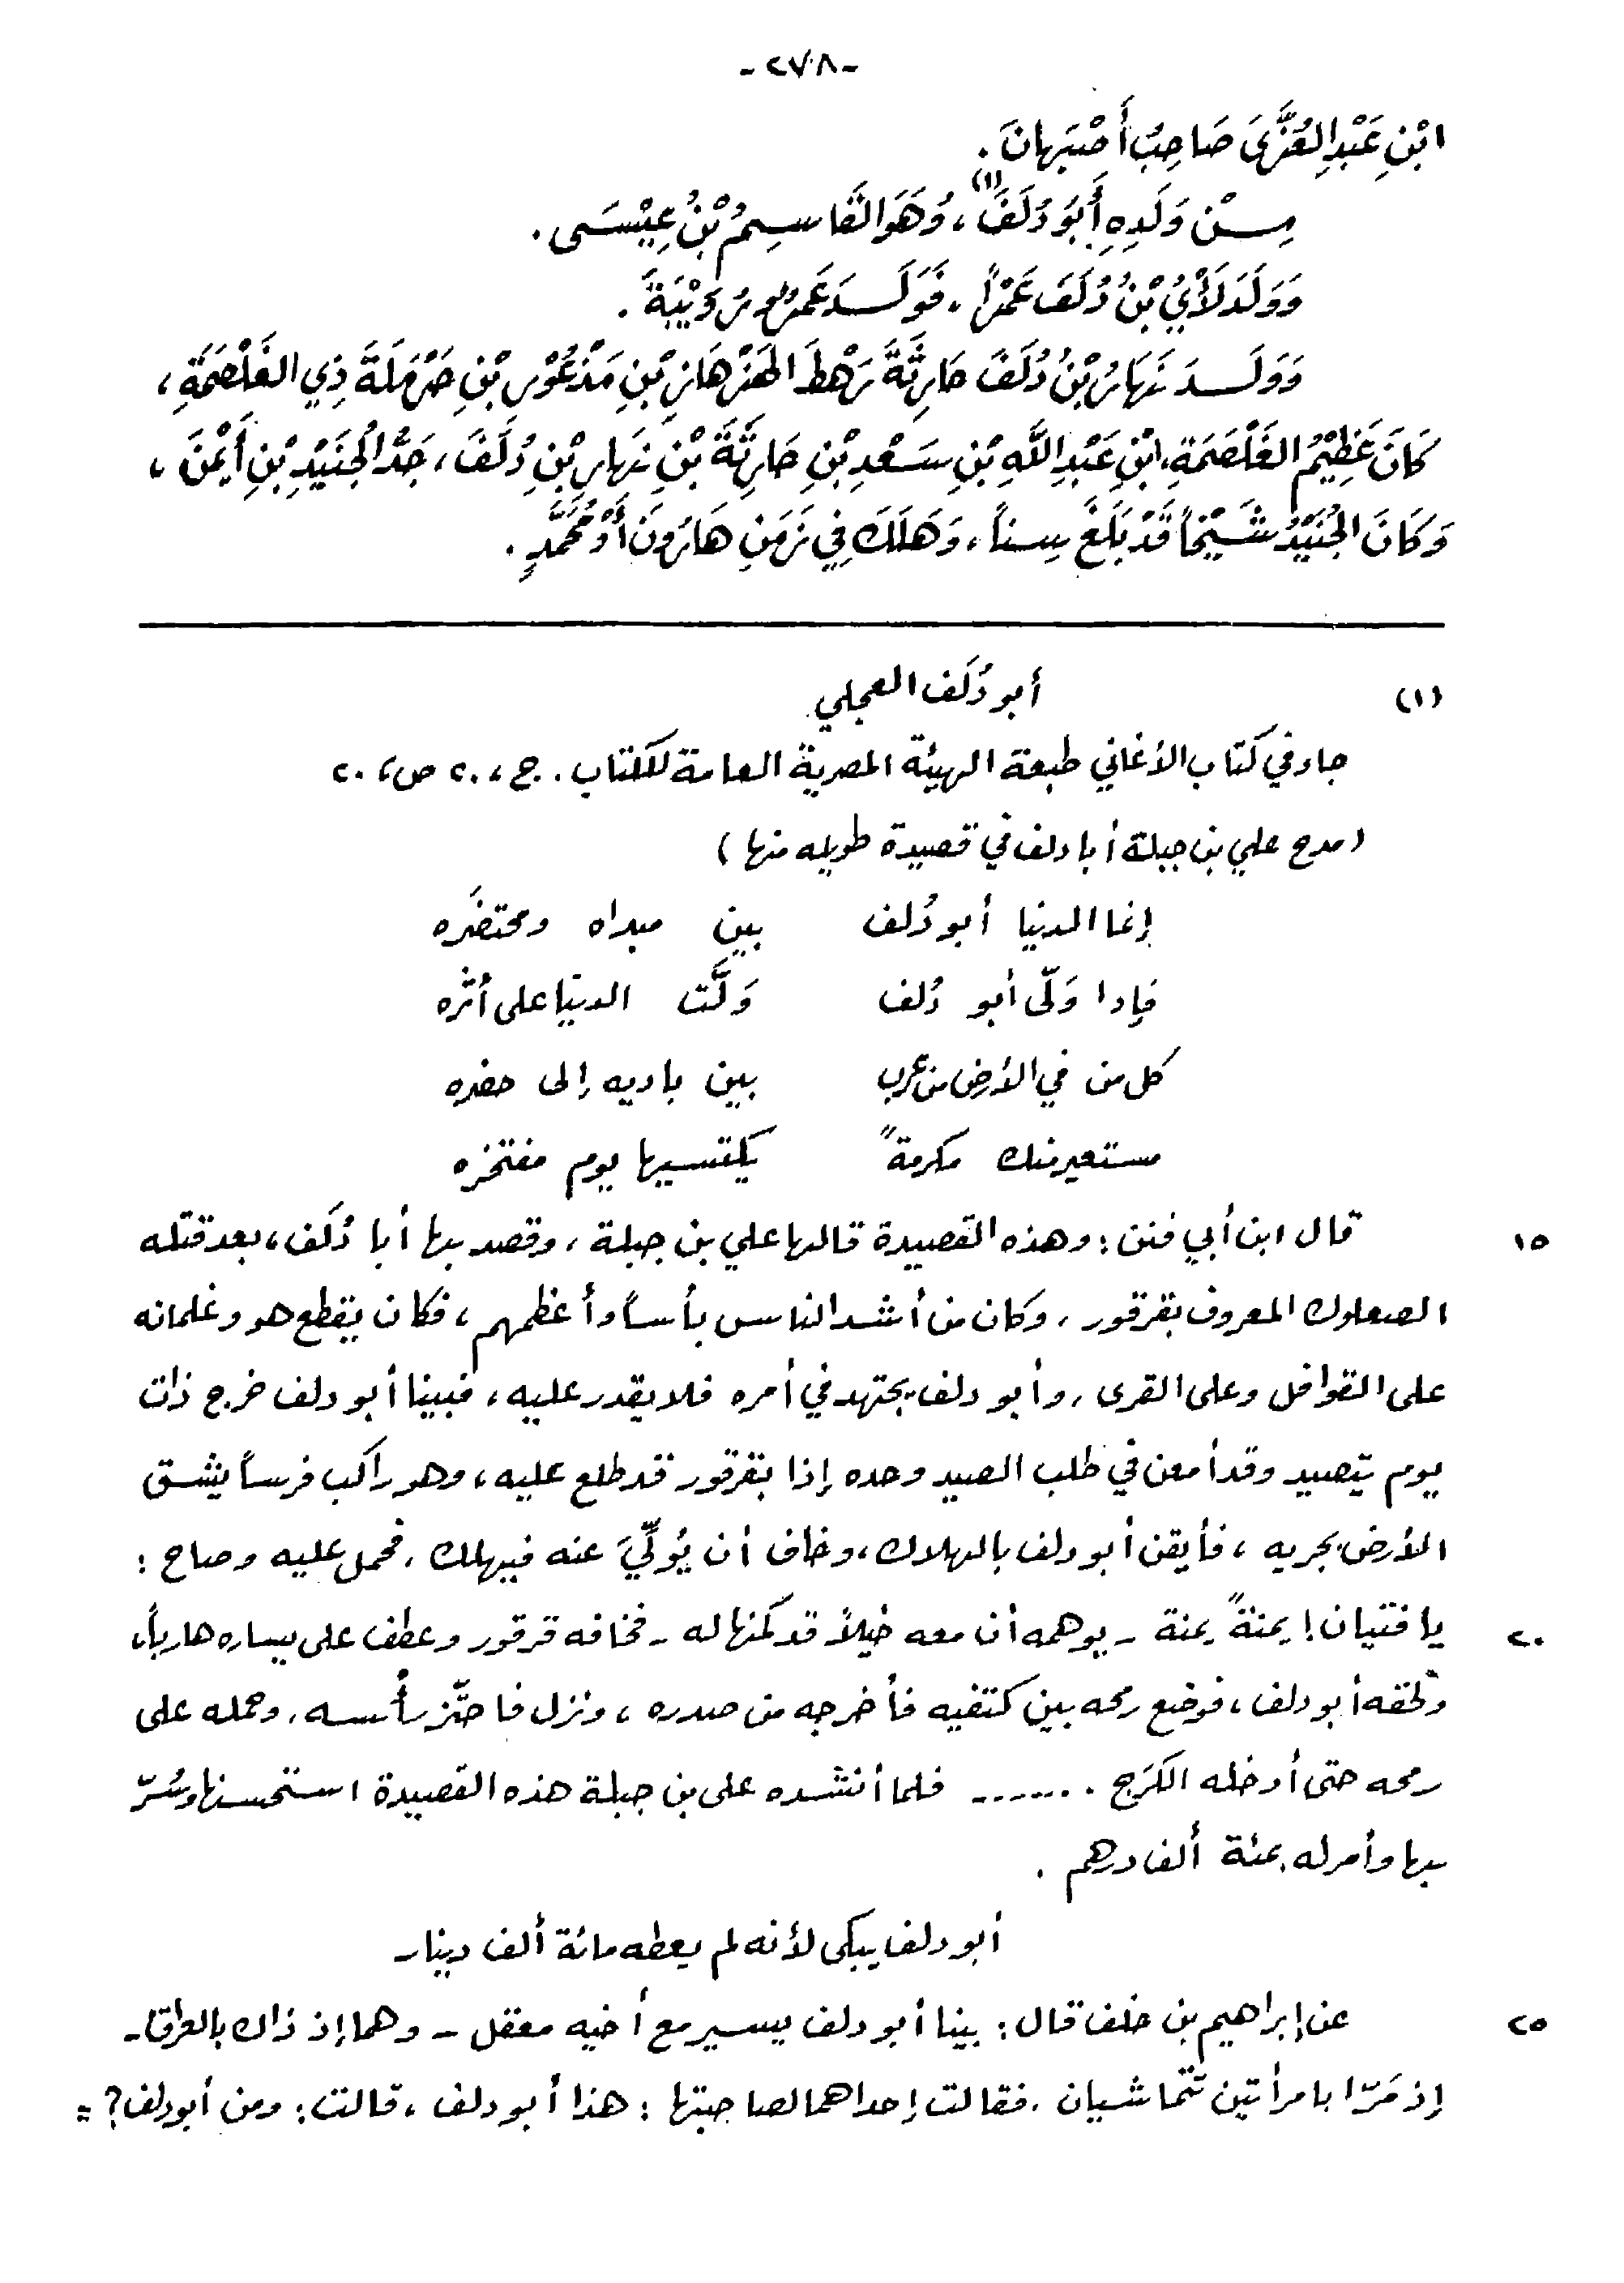 -٢٧٨-
ابْنِ عَبْدِ العُزَّى صَاحِبُ أَصْبَهَانَ.
مِنْ وَلَدِهِ أَبُو دُلَفَ(١)، وَهُوَ القَاسِمُ بْنُ عِيْسَى.
وَوَلَدَ لَأْيُ بْنُ دُلَفَ عَمْرَاً، فَوَلَدَ عَمْرٌو رُوَيْبَةَ.
وَوَلَدَ نَهَارُ بْنُ دُلَفَ حَارِثَةَ رَهْطَ الهَزْهَازِ بْنِ مَذْعُوْرِ بْنِ حَرْمَلَةَ ذِي الغَلْصَمَةِ،
كَانَ عَظِيْمُ الغَلْصَمَةِ، ابْنِ عَبْدِ اللَّهِ بْنِ سَعْدِ بْنِ حَارِثَةَ بْنِ نَهَارِ بْنِ دُلَفَ، جَدُّ الجُنَيْدِ بْنِ أَيْمَنَ،
وَكَانَ الجُنَيْدُ شَيْخَاً قَدْ بَلَغَ سِنَاً، وَهَلَكَ فِي زَمَنِ هَارُونَ أَوْ مُحَمَّدٍ.
(١) أبو دُلَف العجلي
جاء في كتاب الأغاني طبعة الهيئة المصرية العامة للكتاب. ج، ٢٠ ص، ٢٠
(مدح علي بن جبلة أبا دلف في قصيدة طويله منها)
إنما الدنيا أبو دُلف بين مبداه ومحتضَره
فإذا وَلّى أبو دُلف وَلَّت الدنيا على أثره
كل من في الأرض من عرب بين باديه إلى حضره
مستعير منك مكرمةً يكتسيها يوم مفتخره
١٥ قال ابن أبي فنن: وهذه القصيدة قالها علي بن جبلة، وقصد بها أبا دُلَف، بعد قتله
الصعلوك المعروف بقرقور، وكان من أشد الناس بأساً وأعظمهم، فكان يقطع هو وغلمانه
على القوافل وعلى القرى، وأبو دلف يجتهد في أمره فلا يقدر عليه، فبينا أبو دلف خرج ذات
يوم يتصيد وقد أمعن في طلب الصيد وحده إذا بقرقور قد طلع عليه، وهو راكب فرساً يشق
الأرض بجريه، فأيقن أبو دلف بالهلاك، وخاف أن يُولِّيَ عنه فيهلك، فحمل عليه وصاح:
٢٠ يا فتيان! يمنةً يمنة - يوهمه أن معه خيلاً قد كمنها له - فخافه قرقور وعطف على يساره هارباً،
ولحقه أبو دلف، فوضع رمحه بين كتفيه فأخرجه من صدره، ونزل فاحتز رأسه، وحمله على
رمحه حتى أدخله الكَرَج ....... فلما أنشده على بن جبلة هذه القصيدة استحسنها وسُرّ
بها وأمر له بمئة ألف درهم.
أبو دلف يبكي لأنه لم يعطه مائة ألف دينار
٢٥ عن إبراهيم بن خلف قال: بينا أبو دلف يسير مع أخيه معقل - وهما إذ ذاك بالعراق -
إذ مَرّا بامرأتين تتماشيان، فقالت إحداهما لصاحبتها: هذا أبو دلف، قالت: ومن أبو دلف؟ =